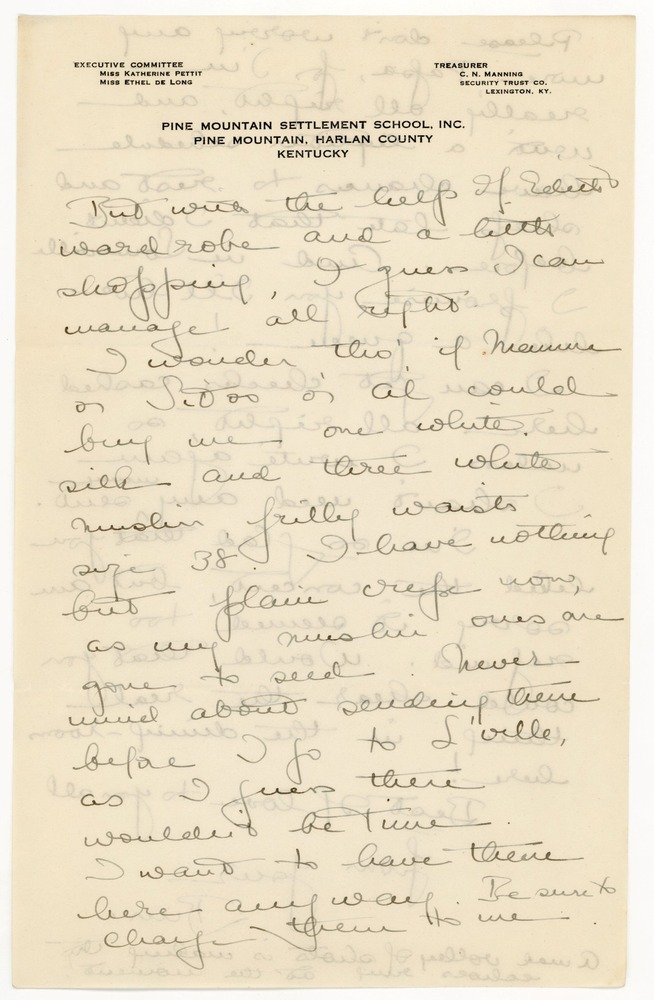 EXECUTIVE COMMITTEE
MISS KATHERINE PETTIT
MISS ETHEL DE LONG
TREASURER
C. N. MANNING
SECURITY TRUST CO.
LEXINGTON, KY.
PINE MOUNTAIN SETTLEMENT SCHOOL, INC.
PINE MOUNTAIN, HARLAN COUNTY
KENTUCKY
But with the help of Edith's
wardrobe and a little
shopping, I guess I can
manage all right.
I wonder, tho', if Mamma
or or Al could
buy me one white
silk and three white
muslin, frilly waists
size 38. I have nothing
but plain crepe now,
as my muslin ones are
gone to seed. Never
mind about sending them
before I go to L'ville,
as I guess there
wouldn't be time.
I want to have them
here anyway. Be sure to
charge them to me.